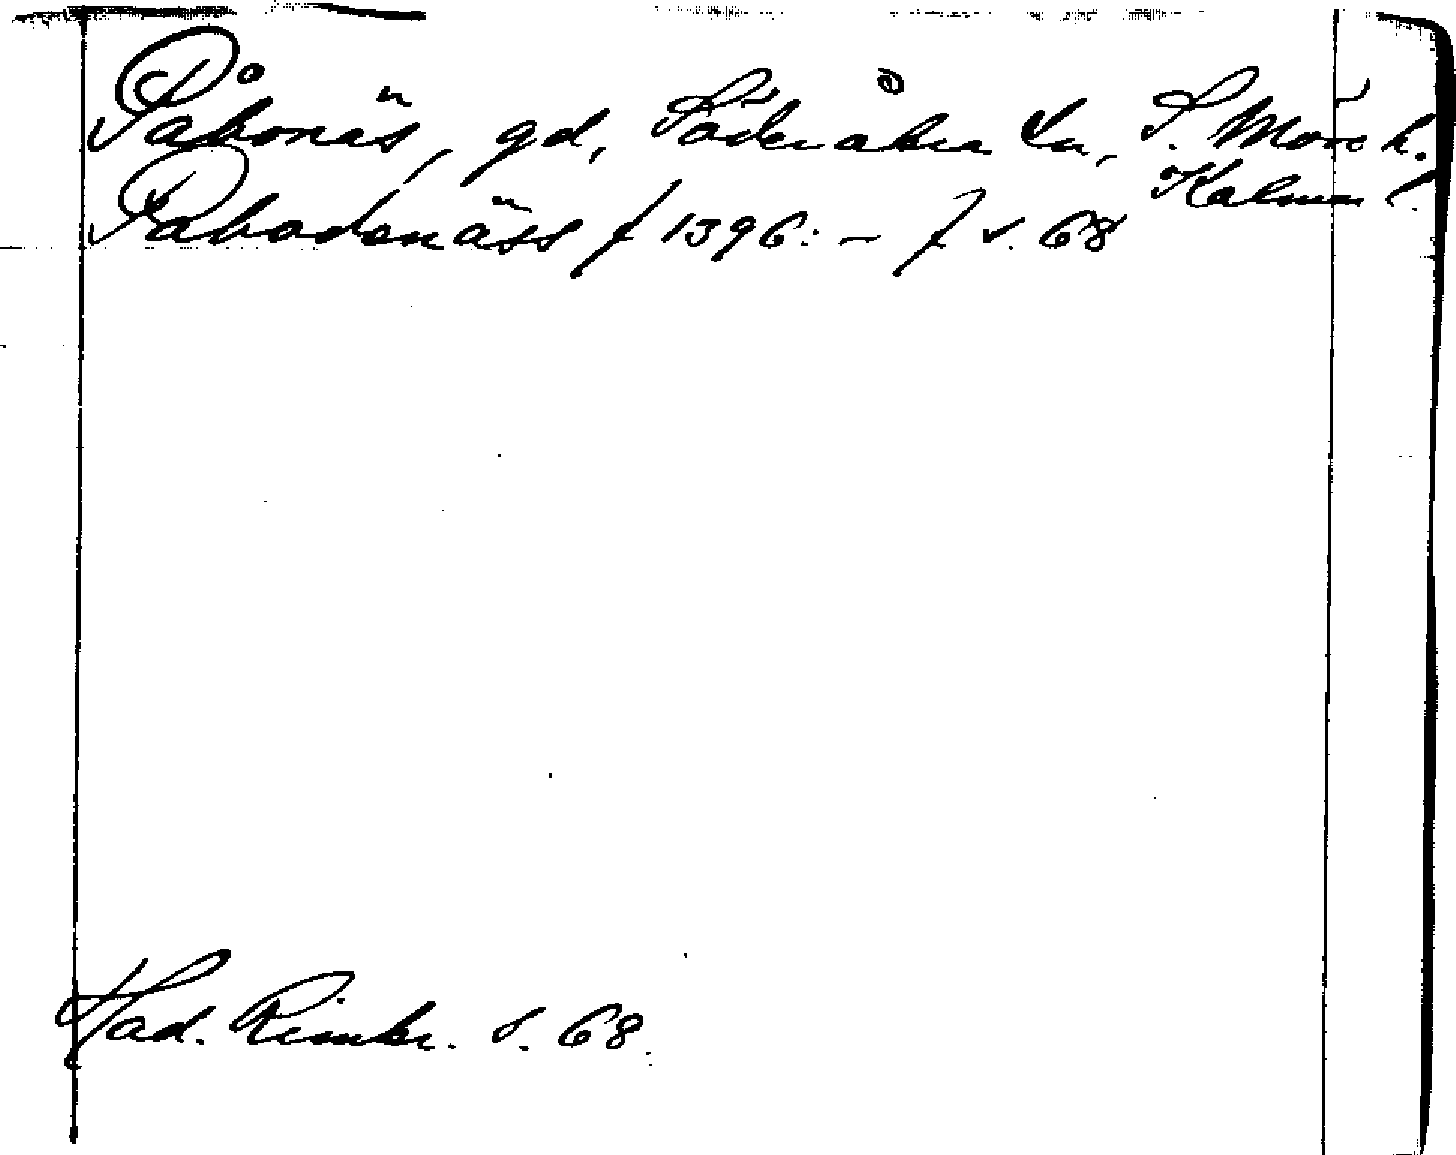 Påbonäs, gd, Söderåkra sn, S. Möre h.
Kalmar l.
Pabodanäss f 1396: – f s. 68
Had. Rimkr. s. 68